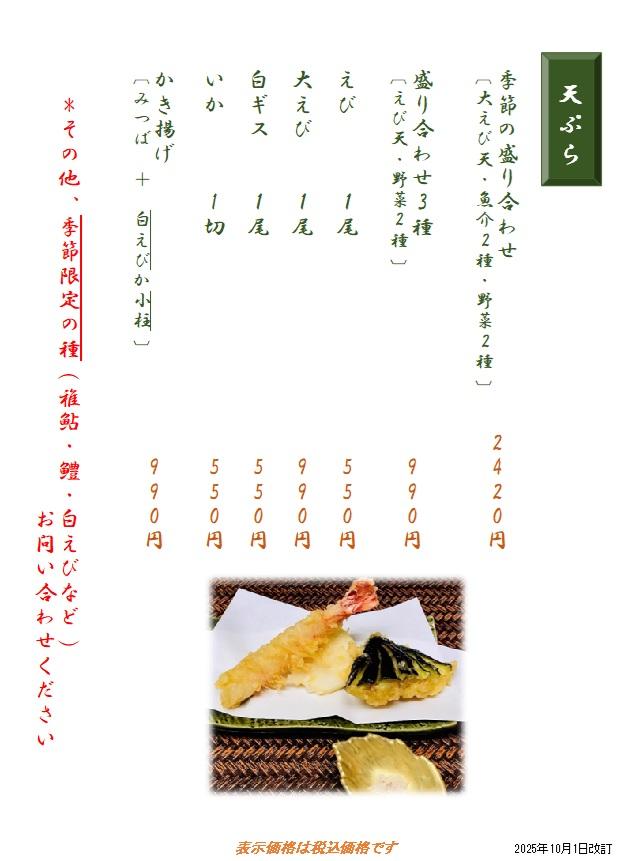 天ぷら
季節の盛り合わせ
〔大えび天・魚介２種・野菜２種〕
２４２０円
盛り合わせ３種
〔えび天・野菜２種〕
９９０円
えび　１尾
５５０円
大えび　１尾
９９０円
白ギス　１尾
５５０円
いか　１切
５５０円
かき揚げ
〔みつば ＋ 白えびか小柱〕
９９０円
＊その他、季節限定の種（稚鮎・鱧・白えびなど）
お問い合わせください
表示価格は税込価格です
2025年10月1日改訂